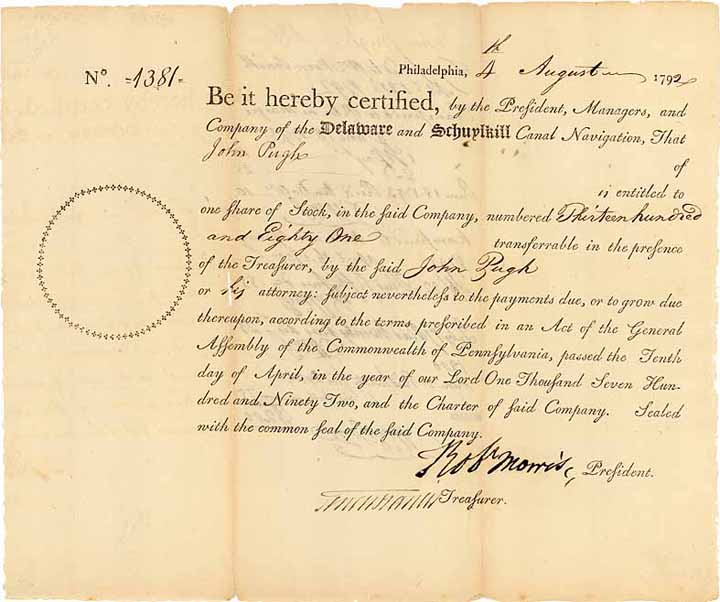 Nº. -1381-
Philadelphia, 4th August 1792
Be it hereby certified, by the Preſident, Managers, and
Company of the Delaware and Schuylkill Canal Navigation, That
John Pugh of
is entitled to
one ſhare of Stock, in the ſaid Company, numbered Thirteen hundred
and Eighty One transferrable in the presence
of the Treaſurer, by the ſaid John Pugh
or his attorney: ſubject nevertheleſs to the payments due, or to grow due
thereupon, according to the terms preſcribed in an Act of the General
Aſſembly of the Commonwealth of Pennſylvania, paſſed the Tenth
day of April, in the year of our Lord One Thouſand Seven Hun-
dred and Ninety Two, and the Charter of ſaid Company. Sealed
with the common ſeal of the ſaid Company.
Robt Morris, Preſident.
Treaſurer.